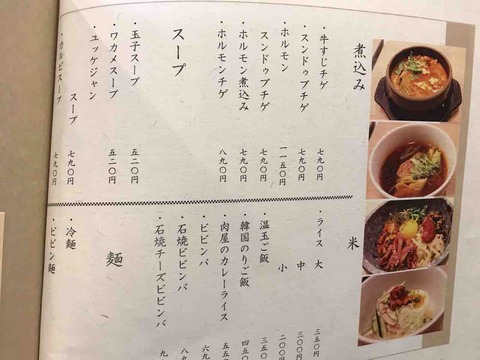 煮込み
・牛すじチゲ 七九〇円
・スンドゥブチゲ 七九〇円
・ホルモン 一一五〇円
スンドゥブチゲ 七九〇円
・ホルモン煮込み 七九〇円
・ホルモンチゲ 八九〇円
スープ
・玉子スープ 五二〇円
・ワカメスープ 五二〇円
・ユッケジャン
スープ 七九〇円
・カルビスープ 七九〇円
米
・ライス 大 三五〇円
中 三〇〇円
小 二〇〇円
・温玉ご飯 三五〇
・韓国のりご飯 四五〇
・肉屋のカレーライス 五五
・ビビンバ 六九
・石焼ビビンバ 八九
・石焼チーズビビンバ 九
麺
・冷麺
・ビビン麺